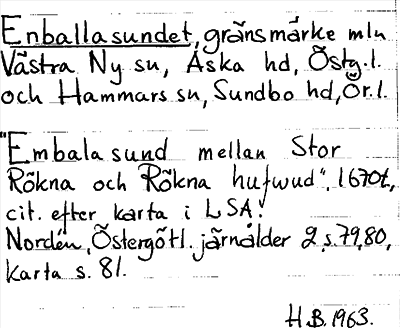 Enballasundet, gränsmärke mln
Västra Ny sn, Aska hd, Östg.l.
och Hammars sn, Sundbo hd, Ör.l.
"Embala sund mellan Stor
Rökna och Rökna hufwud", 1670t,
cit. efter karta i LSA.
Nordén, Östergötl. järnålder 2, s. 79, 80,
karta s. 81.
H.B. 1963.